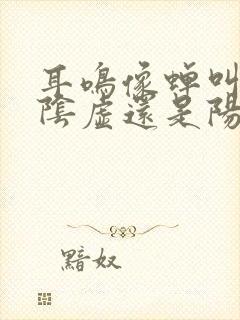 耳鳴像蟬叫
陰虛還是陽
黯奴